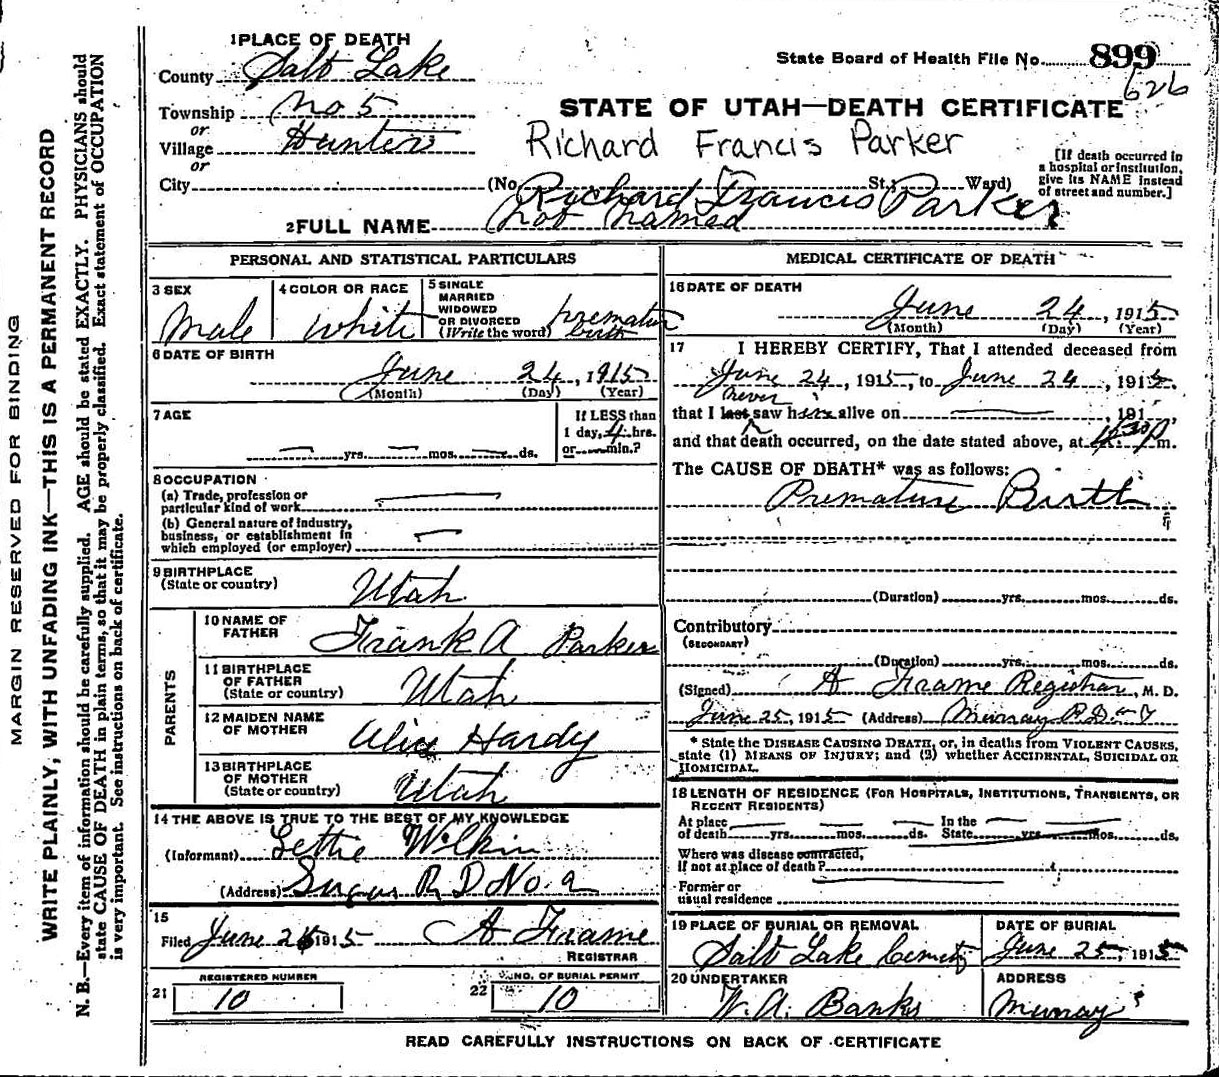 MARGIN RESERVED FOR BINDING
WRITE PLAINLY, WITH UNFADING INK—THIS IS A PERMANENT RECORD
N. B.—Every item of information should be carefully supplied. AGE should be stated EXACTLY. PHYSICIANS should
state CAUSE OF DEATH in plain terms, so that it may be properly classified. Exact statement of OCCUPATION
is very important. See instructions on back of certificate.
1 PLACE OF DEATH
County Salt Lake
State Board of Health File No. 899
626
Township No 5
or
Village Hunter
or
City
STATE OF UTAH—DEATH CERTIFICATE
Richard Francis Parker
[If death occurred in
a hospital or institution,
give its NAME instead
of street and number.]
(No. St.; Ward)
Richard Francis Parker
2 FULL NAME not named
PERSONAL AND STATISTICAL PARTICULARS
3 SEX
Male
4 COLOR OR RACE
White
5 SINGLE
MARRIED
WIDOWED
OR DIVORCED
(Write the word)
premature
birth
6 DATE OF BIRTH
June 24, 1915
(Month) (Day) (Year)
7 AGE
— yrs. — mos. — ds.
If LESS than
1 day, 4 hrs.
or min.?
8 OCCUPATION
(a) Trade, profession or
particular kind of work —
(b) General nature of industry,
business, or establishment in
which employed (or employer) —
9 BIRTHPLACE
(State or country)
Utah
PARENTS
10 NAME OF
FATHER
Frank A Parker
11 BIRTHPLACE
OF FATHER
(State or country)
Utah
12 MAIDEN NAME
OF MOTHER
Alice Hardy
13 BIRTHPLACE
OF MOTHER
(State or country)
Utah
14 THE ABOVE IS TRUE TO THE BEST OF MY KNOWLEDGE
(Informant) Lettie Wilkin
(Address) R D No. 2
15
Filed June 1915 A Frame
REGISTRAR
REGISTERED NUMBER
21 10
NO. OF BURIAL PERMIT
22 10
MEDICAL CERTIFICATE OF DEATH
16 DATE OF DEATH
June 24, 1915
(Month) (Day) (Year)
17 I HEREBY CERTIFY, That I attended deceased from
June 24, 1915, to June 24, 1915.
never
that I last saw him alive on — , 191
and that death occurred, on the date stated above, at m.
The CAUSE OF DEATH* was as follows:
Premature Birth
(Duration) yrs. mos. ds.
Contributory
(SECONDARY)
(Duration) yrs. mos. ds.
(Signed) A Frame Registrar, M. D.
June 25, 1915 (Address) Murray R.D. No 7
* State the DISEASE CAUSING DEATH, or, in deaths from VIOLENT CAUSES,
state (1) MEANS OF INJURY; and (2) whether ACCIDENTAL, SUICIDAL OR
HOMICIDAL.
18 LENGTH OF RESIDENCE (FOR HOSPITALS, INSTITUTIONS, TRANSIENTS, OR
RECENT RESIDENTS)
At place In the
of death yrs. mos. ds. State yrs. mos. ds.
Where was disease contracted,
if not at place of death?
Former or
usual residence
19 PLACE OF BURIAL OR REMOVAL
Salt Lake
DATE OF BURIAL
June 25, 1915
20 UNDERTAKER
W. A. Banks
ADDRESS
Murray
READ CAREFULLY INSTRUCTIONS ON BACK OF CERTIFICATE